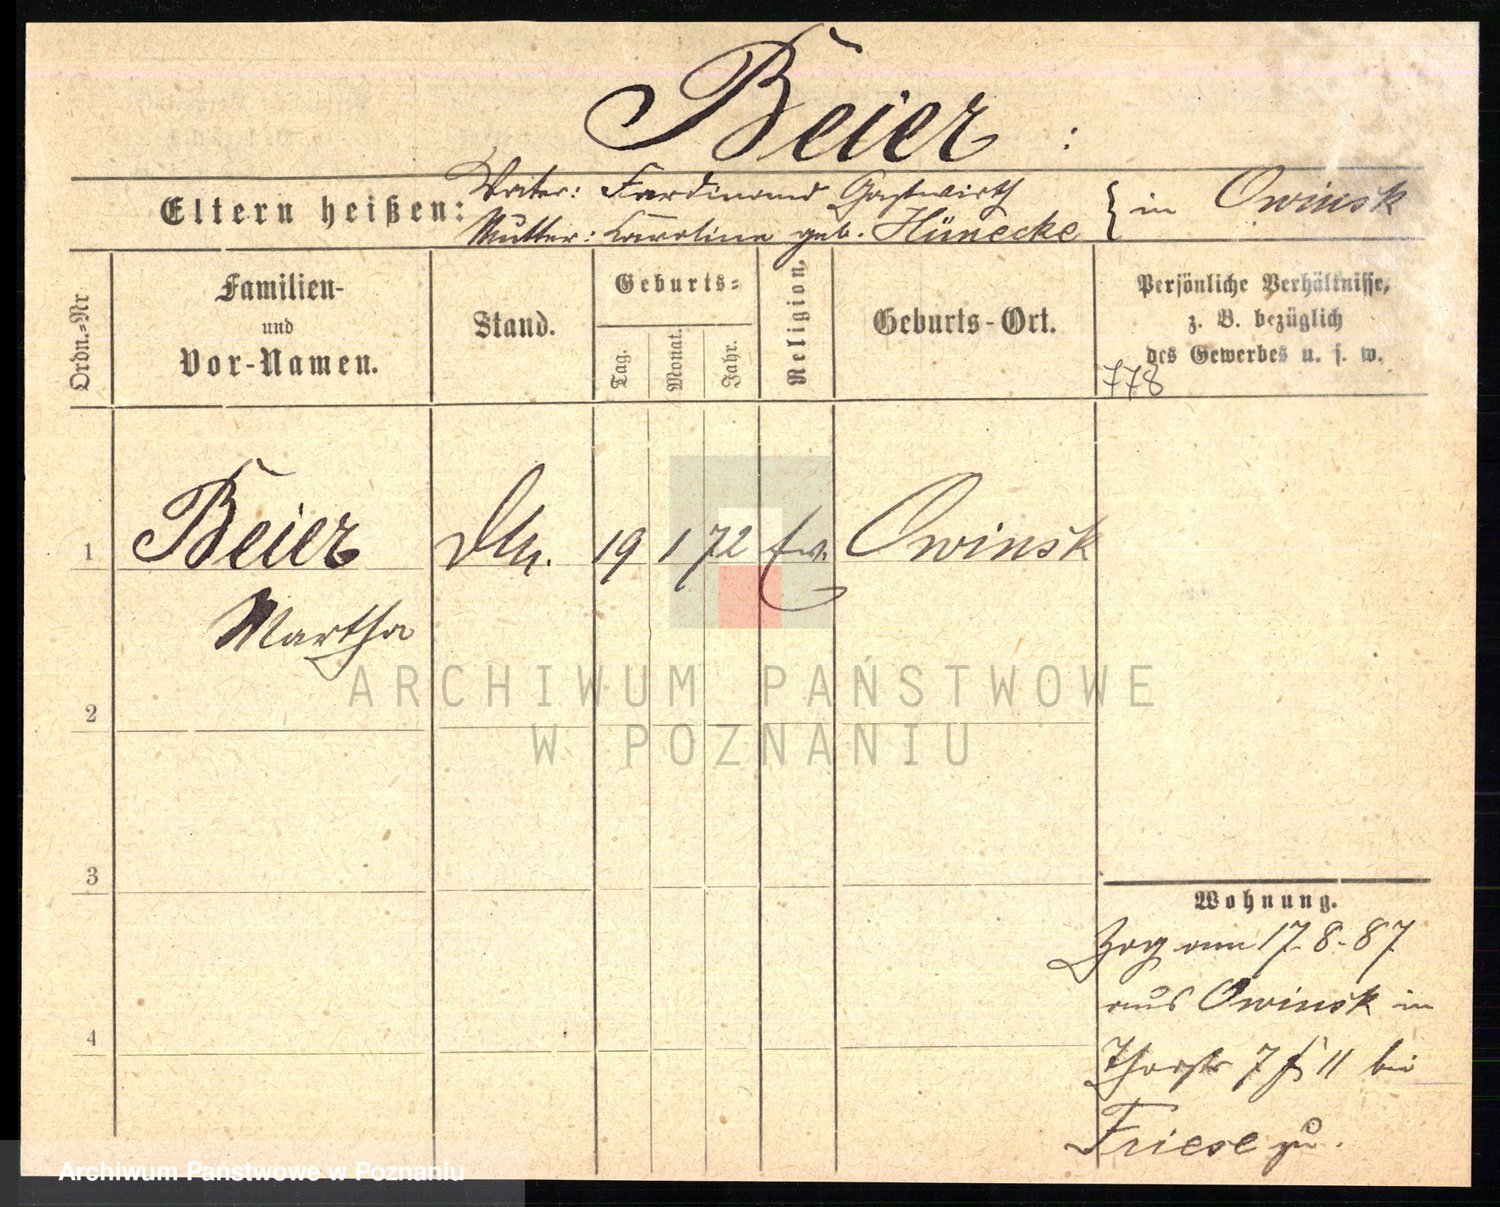 Beier :
Eltern heißen:
Vater: Ferdinand Gastwirth
Mutter: Karoline geb. Hünecke } in Owinsk
Ordn.-Nr
Familien-
und
Vor-Namen.
Stand.
Geburts-
Tag.
Monat.
Jahr.
Religion.
Geburts-Ort.
Persönliche Verhältnisse,
z. B. bezüglich
des Gewerbes u. s. w.
778
1 Beier 19 1 72 ev. Owinsk
Martha
2
3
4
Wohnung.
Zog am 17.8.87
aus Owinsk in
7 11 bei
Friese zu.
ARCHIWUM PAŃSTWOWE
W POZNANIU
Archiwum Państwowe w Poznaniu